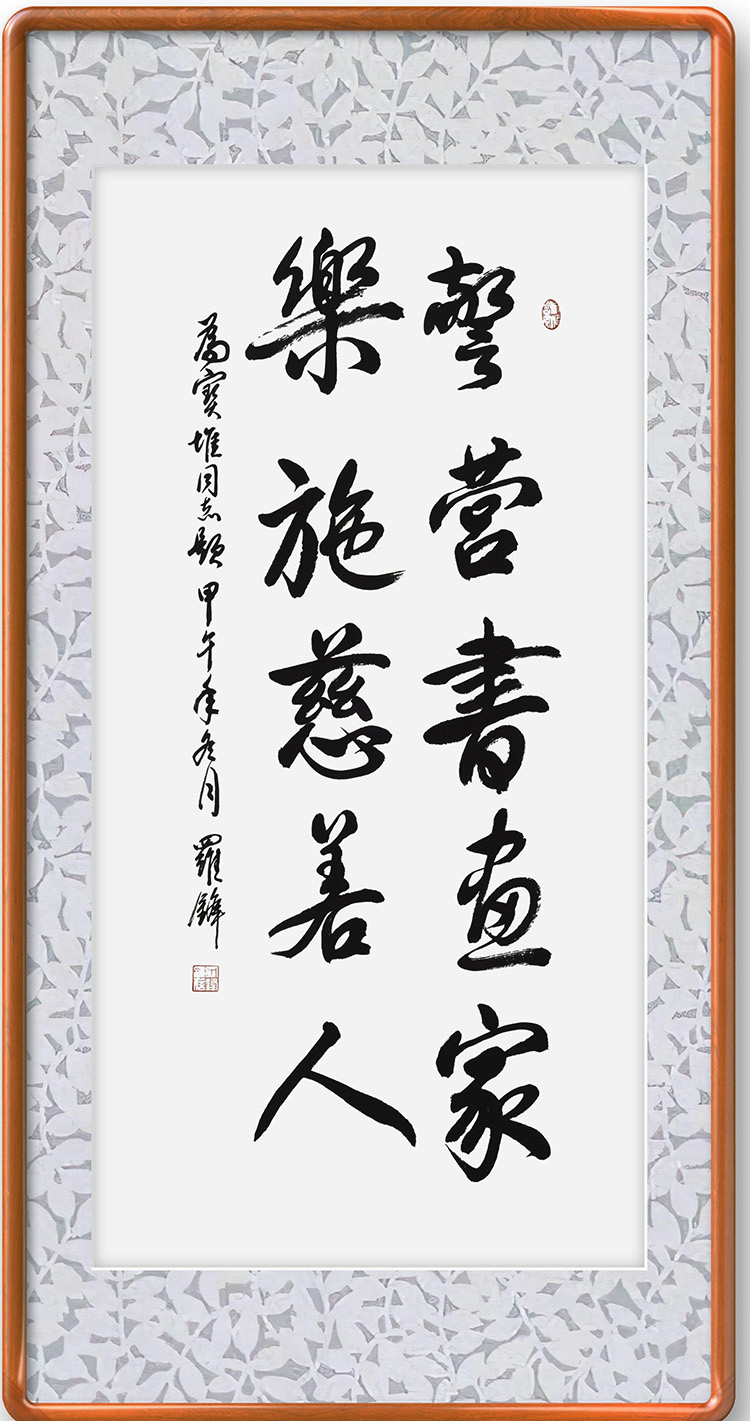 警营書畫家
樂施慈善人
為寶堆同志題 甲午年冬月 羅鋒